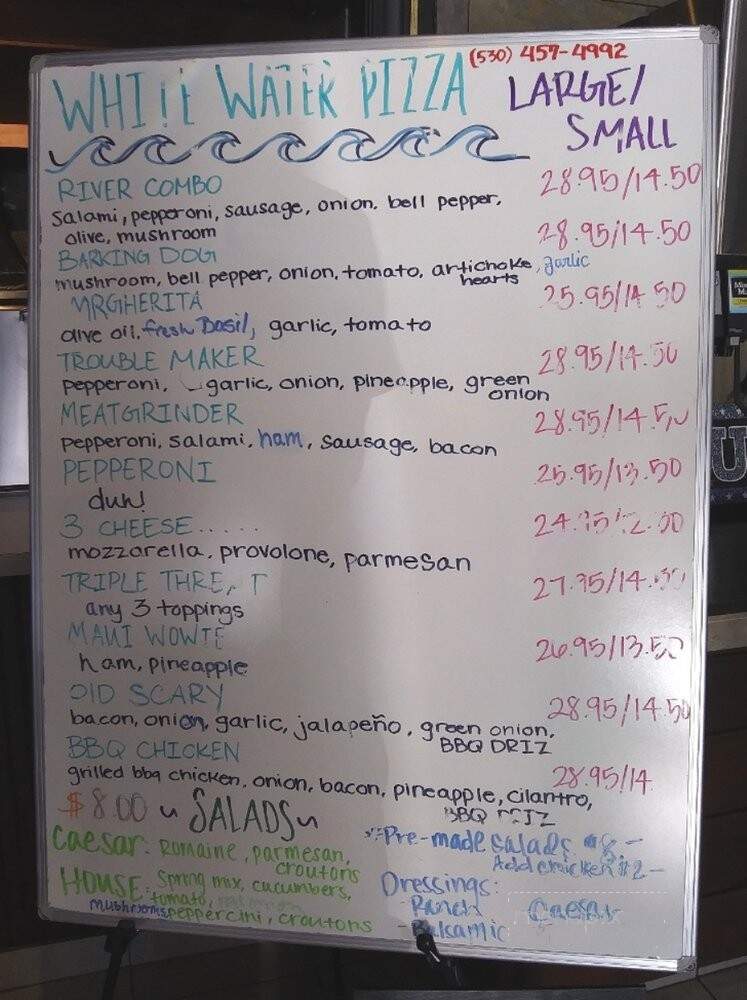 (530) 457-4992
WHITE WATER PIZZA LARGE/
SMALL
RIVER COMBO 28.95/14.50
salami, pepperoni, sausage, onion, bell pepper,
olive, mushroom
BARKING DOG 28.95/14.50
mushroom, bell pepper, onion, tomato, artichoke, garlic
hearts
MRGHERITA 25.95/14.50
olive oil, fresh Basil, garlic, tomato
TROUBLE MAKER 28.95/14.50
pepperoni, garlic, onion, pineapple, green
onion
MEATGRINDER 28.95/14.50
pepperoni, salami, ham, sausage, bacon
PEPPERONI 25.95/13.50
duh!
3 CHEESE.....
mozzarella, provolone, parmesan
TRIPLE THRE T 27.95/14.50
any 3 toppings
MAUI WOWIE 26.95/13.50
ham, pineapple
OLD SCARY 28.95/14.50
bacon, onion, garlic, jalapeño, green onion,
BBQ DRIZ
BBQ CHICKEN 28.95/14
grilled bbq chicken, onion, bacon, pineapple, cilantro,
BBQ DRIZ
$8.00 ~ SALADS ~
Caesar: Romaine, parmesan,
croutons
HOUSE: Spring mix, cucumbers,
tomato,
mushrooms, peppercini, croutons
Pre-made salads $8-
Add chicken $2-
Dressings:
- Ranch Caesar
- Balsamic